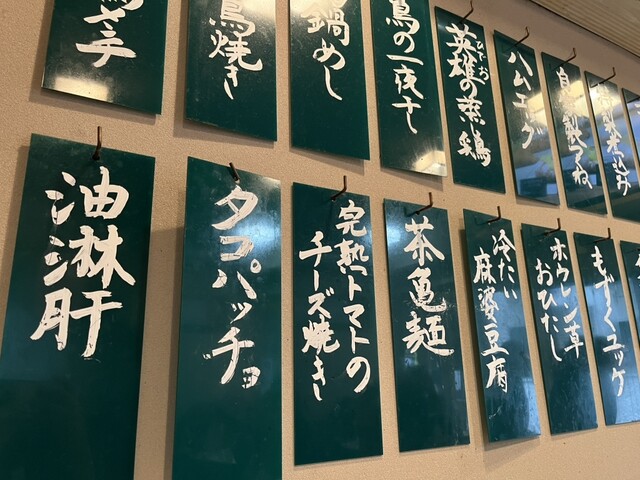 鳥焼き
鍋めし
鳥の一夜干し
英雄の蒸鶏
ひでお
ハムエッグ
油淋肝
タコパッチョ
完熟トマトの
チーズ焼き
茶亀麺
冷たい
麻婆豆腐
ホウレン草
おひたし
もずくユッケ